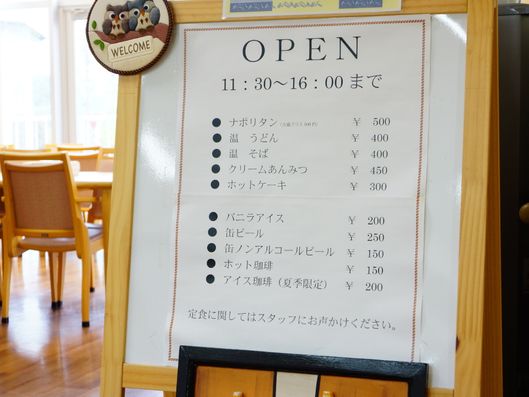 WELCOME
OPEN
11：30～16：00まで
● ナポリタン ￥ 500
● 温 うどん ￥ 400
● 温 そば ￥ 400
● クリームあんみつ ￥ 450
● ホットケーキ ￥ 300
● バニラアイス ￥ 200
● 缶ビール ￥ 250
● 缶ノンアルコールビール ￥ 150
● ホット珈琲 ￥ 150
● アイス珈琲（夏季限定） ￥ 200
定食に関してはスタッフにお声かけください。